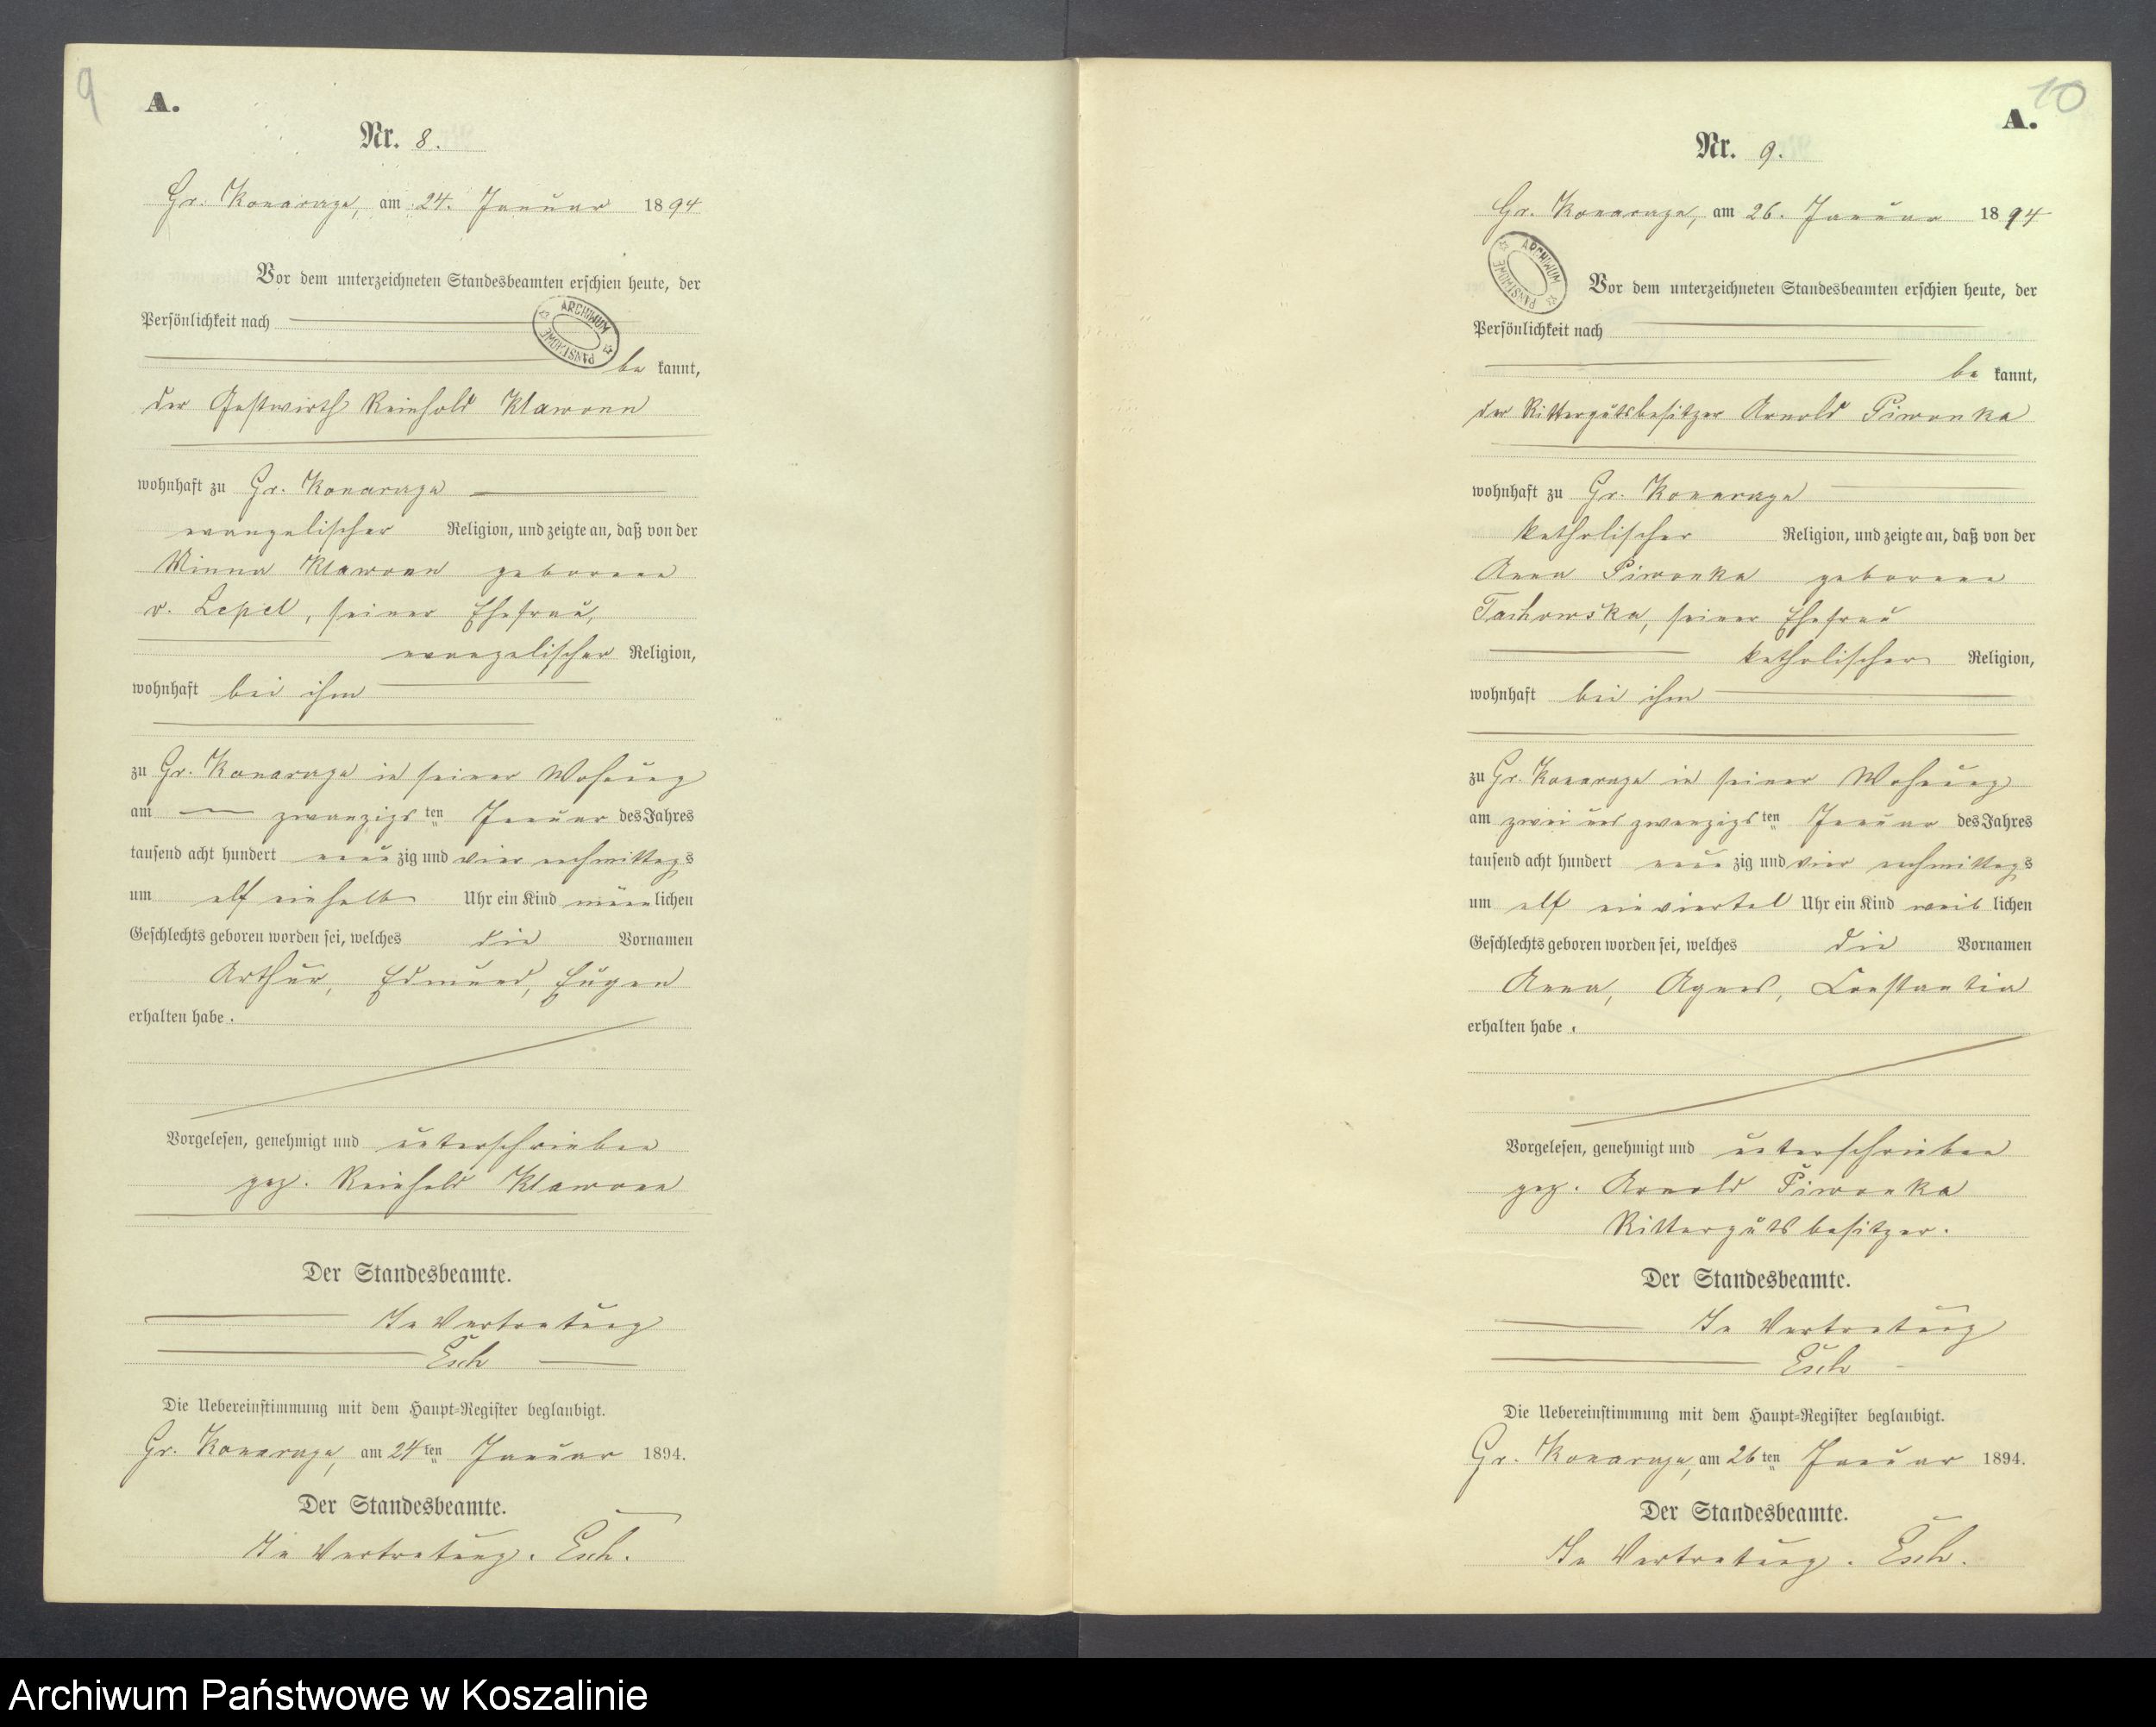 9
A.
Nr. 8.
Gr. Konarzyn, am 24. Januar 1894
Vor dem unterzeichneten Standesbeamten erschien heute, der
Persönlichkeit nach
ARCHIWUM PAŃSTWOWE
be kannt,
der Gastwirth Reinhold Klawonn
wohnhaft zu Gr. Konarzyn
evangelischer Religion, und zeigte an, daß von der
Minna Klawonn geborene
v. Lepel, seiner Ehefrau,
evangelischer Religion,
wohnhaft bei ihm
zu Gr. Konarzyn in seiner Wohnung
am zwanzigsten Januar des Jahres
tausend acht hundert neunzig und vier nachmittags
um elf einhalb Uhr ein Kind männlichen
Geschlechts geboren worden sei, welches die Vornamen
Arthur, Edmund, Eugen
erhalten habe.
Vorgelesen, genehmigt und unterschrieben
gez. Reinhold Klawonn
Der Standesbeamte.
In Vertretung
Esch
Die Uebereinstimmung mit dem Haupt-Register beglaubigt.
Gr. Konarzyn, am 24ten Januar 1894.
Der Standesbeamte.
In Vertretung. Esch.
10
A.
Nr. 9.
Gr. Konarzyn, am 26. Januar 1894
ARCHIWUM PAŃSTWOWE
Vor dem unterzeichneten Standesbeamten erschien heute, der
Persönlichkeit nach
be kannt,
der Rittergutsbesitzer Arnold Piwonka
wohnhaft zu Gr. Konarzyn
katholischer Religion, und zeigte an, daß von der
Anna Piwonka geborene
Tachowska, seiner Ehefrau
katholischer Religion,
wohnhaft bei ihm
zu Gr. Konarzyn in seiner Wohnung
am zwei und zwanzigsten Januar des Jahres
tausend acht hundert neunzig und vier nachmittags
um elf einviertel Uhr ein Kind weiblichen
Geschlechts geboren worden sei, welches die Vornamen
Anna, Agnes, Constantia
erhalten habe.
Vorgelesen, genehmigt und unterschrieben
gez. Arnold Piwonka
Rittergutsbesitzer.
Der Standesbeamte.
In Vertretung
Esch
Die Uebereinstimmung mit dem Haupt-Register beglaubigt.
Gr. Konarzyn, am 26ten Januar 1894.
Der Standesbeamte.
In Vertretung. Esch.
Archiwum Państwowe w Koszalinie